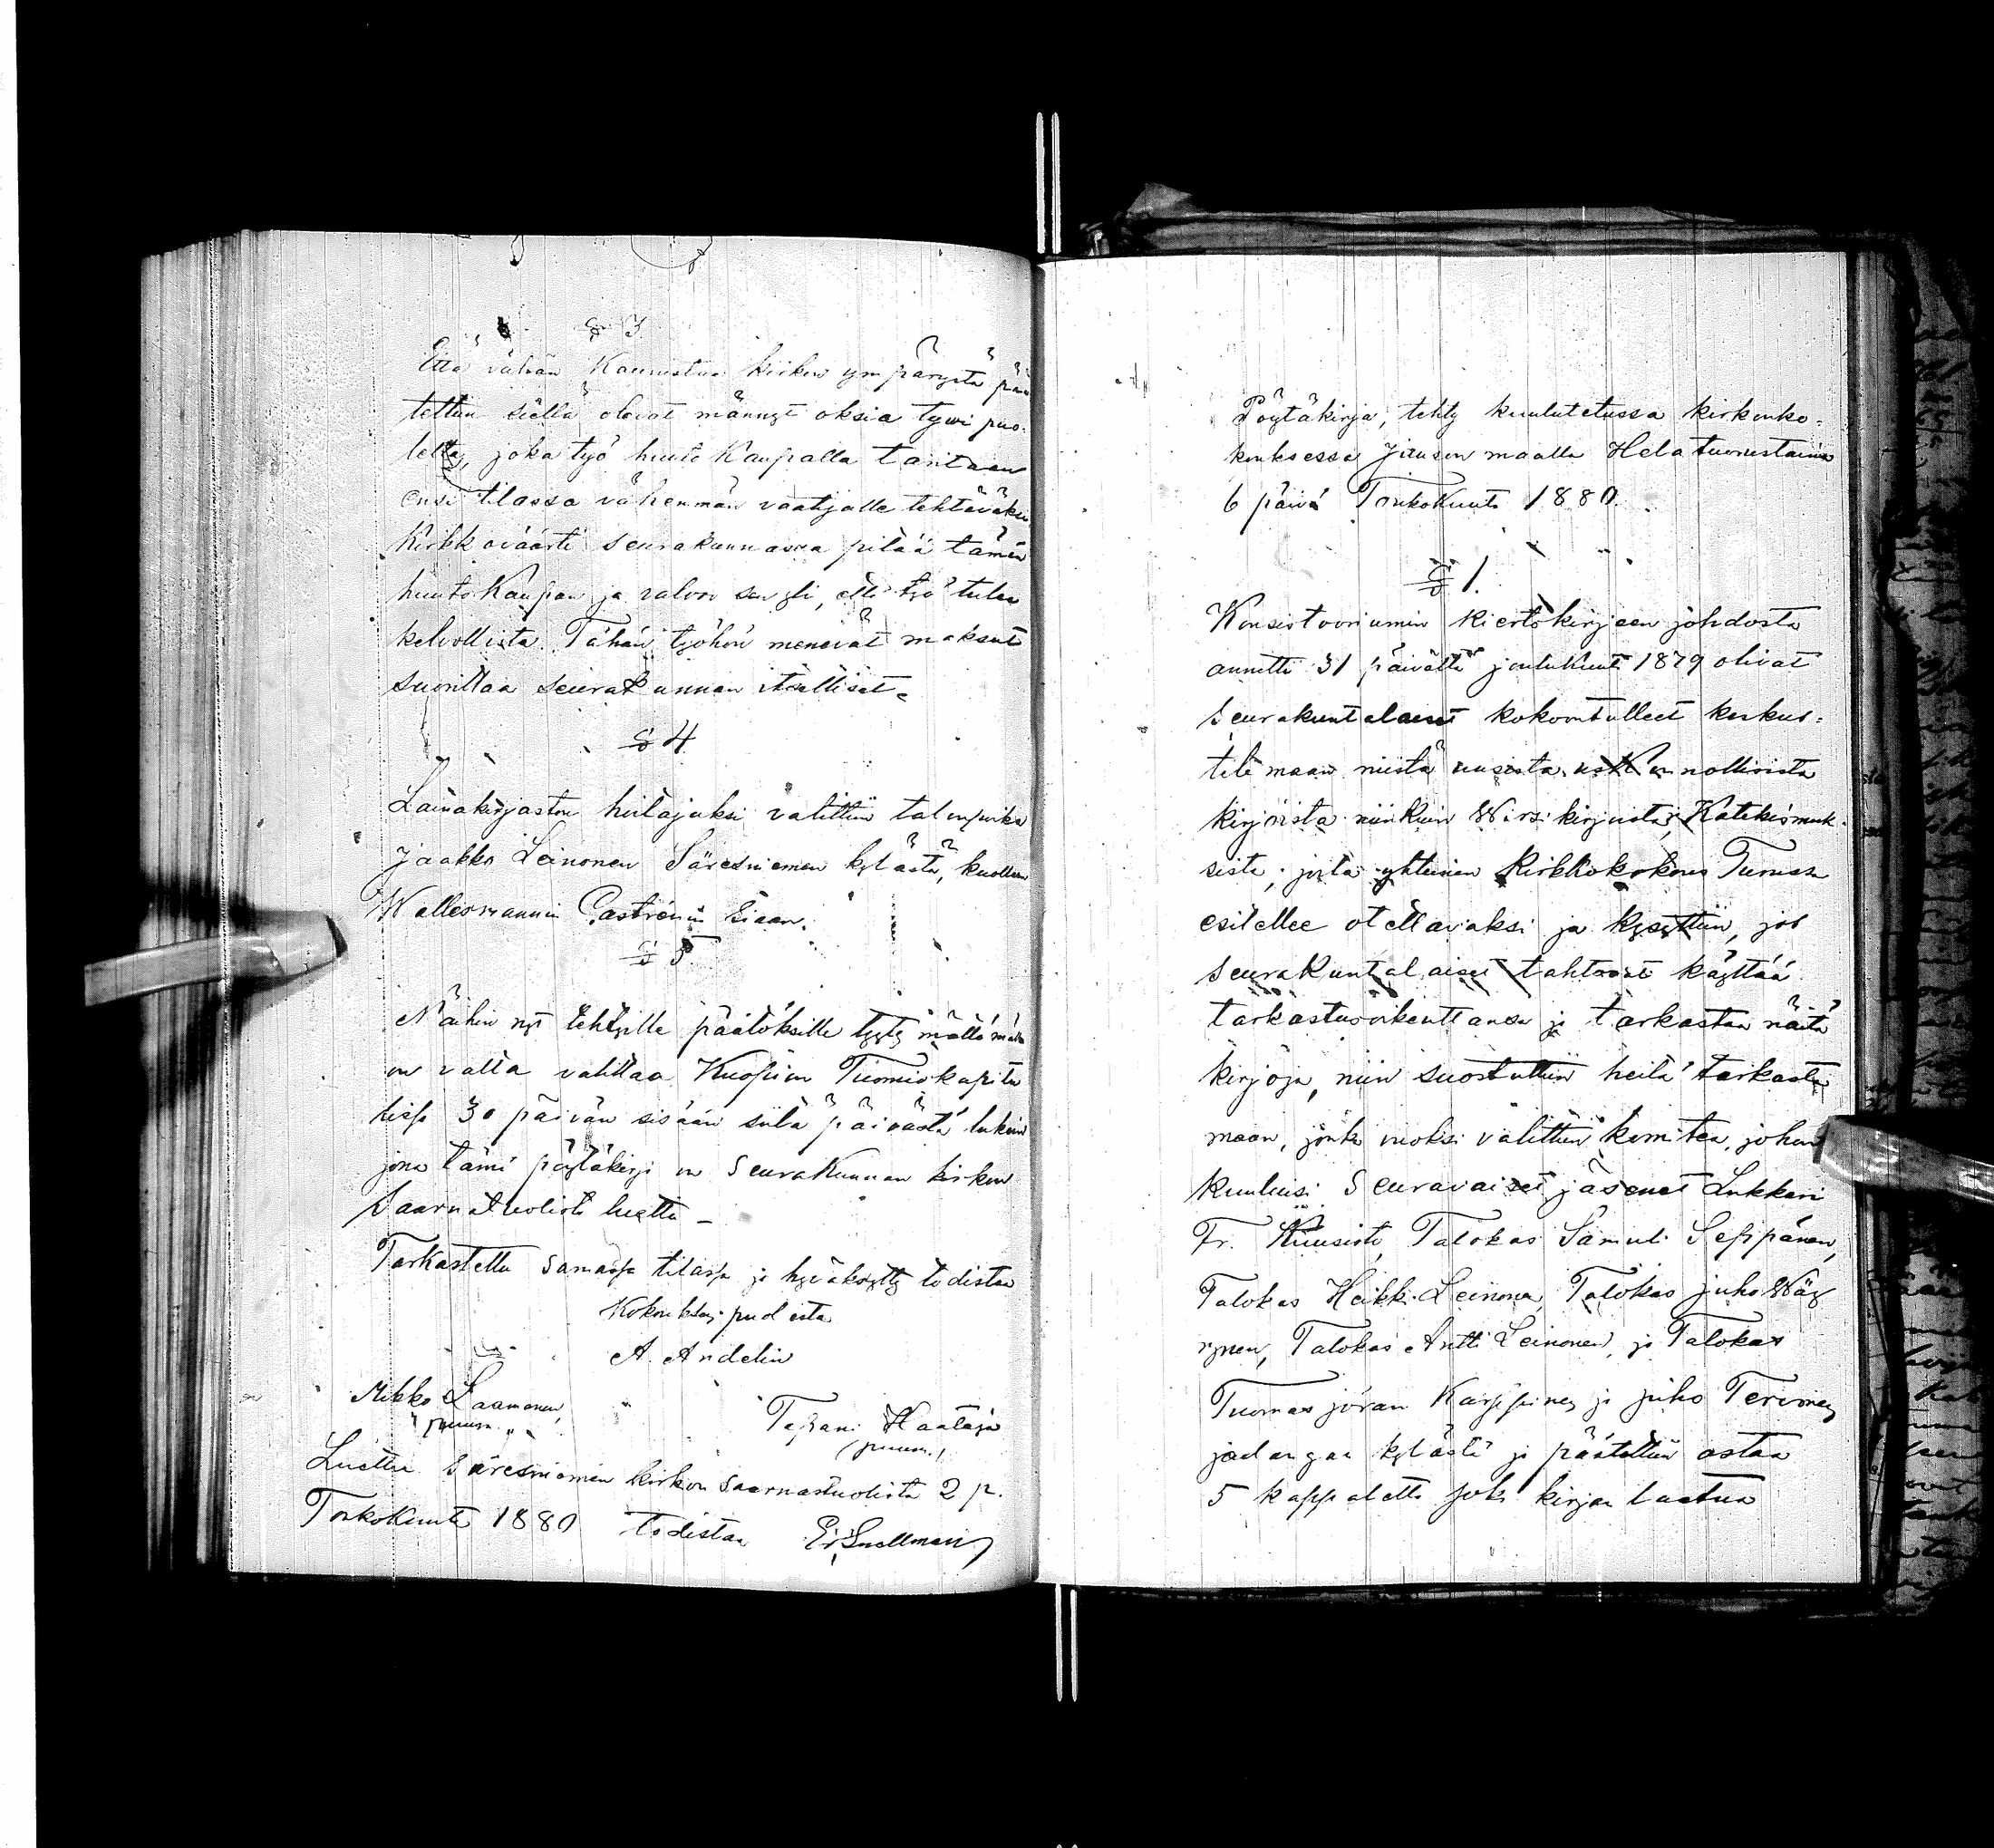 § 3
Että vähän Kaunistua kirkon ympärystä pää
tettiin siellä olevat männyt oksia tywi puo-
lelta, joka työ huuto Kaupalla taritaan
ensi tilassa vähemmän vaatijalle tehtäväksi
Kirkkoväärti seurakunnassa pitää tämän
huuto Kaupan ja valvoo sen yli, että työ tulee
kelvollista. Tähän työhön menevät maksut
suorittaa seurakunnan itselliset.
§ 4
Lainakirjaston hoitajaksi valittiin talonpoika
Jaakko Leinonen Säresniemen kylästä, kuolleen
Wallesmannin Castrénin siaan.
§ 5
Näihin nyt tehtyille päätöksille tyytymättömällä
on valta valittaa Kuopion Tuomiokapitu
lissa 30 päivän sisään siitä päivästä lukein
jona tämä pöytäkirja on Seurakunnan kirkon
Saarnatuolista luettu –
Tarkastettu samassa tilassa ja hyväksytty todistaa
Kokouksen puolesta
A. Andelin
Mikko Laamanen, Tapani Haataja
puum. (puum.)
Luettu Säresniemen kirkon saarnastuolista 2 p.
Toukokuuta 1880 todistaa E. Snellman
Pöytäkirja, tehty kuulutetussa kirkonko-
kouksessa Jitusen maalla Helatuorustaina
6 päivä Toukokuuta 1880.
§ 1.
Konsistooriumin kiertokirjeen johdosta
annettu 31 päivältä joulukuut 1879 olivat
Seurakuntalaiset kokoontulleet keskus-
telemaan niistä uusista uskonnollisista
kirjoista niinkuin Wirsi kirjuista, Katekismuk-
sista, joita yhteinen Kirkkokokous Turussa
esitellee otettavaksi ja kysyttiin, jos
Seurakuntalaiset tahtovat käyttää
tarkastusoikeuttansa ja tarkastaa näitä
kirjoja, niin suostuttiin heitä tarkasta
maan, jonka vuoksi valittiin komitea, johon
kuuluisi Seuraavaiset jäsenet Lukkari
Fr. Kuusisto, Talokas Samuli Seppänen,
Talokas Heikki Leinonen, Talokas Juho Wäy
rynen, Talokas Antti Leinonen, ja Talokas
Tuomas Juvan Karppinen ja Juho Tervonen
jaalangan kylästä ja päätettiin ostaa
5 kappaletta joka kirjan laatua